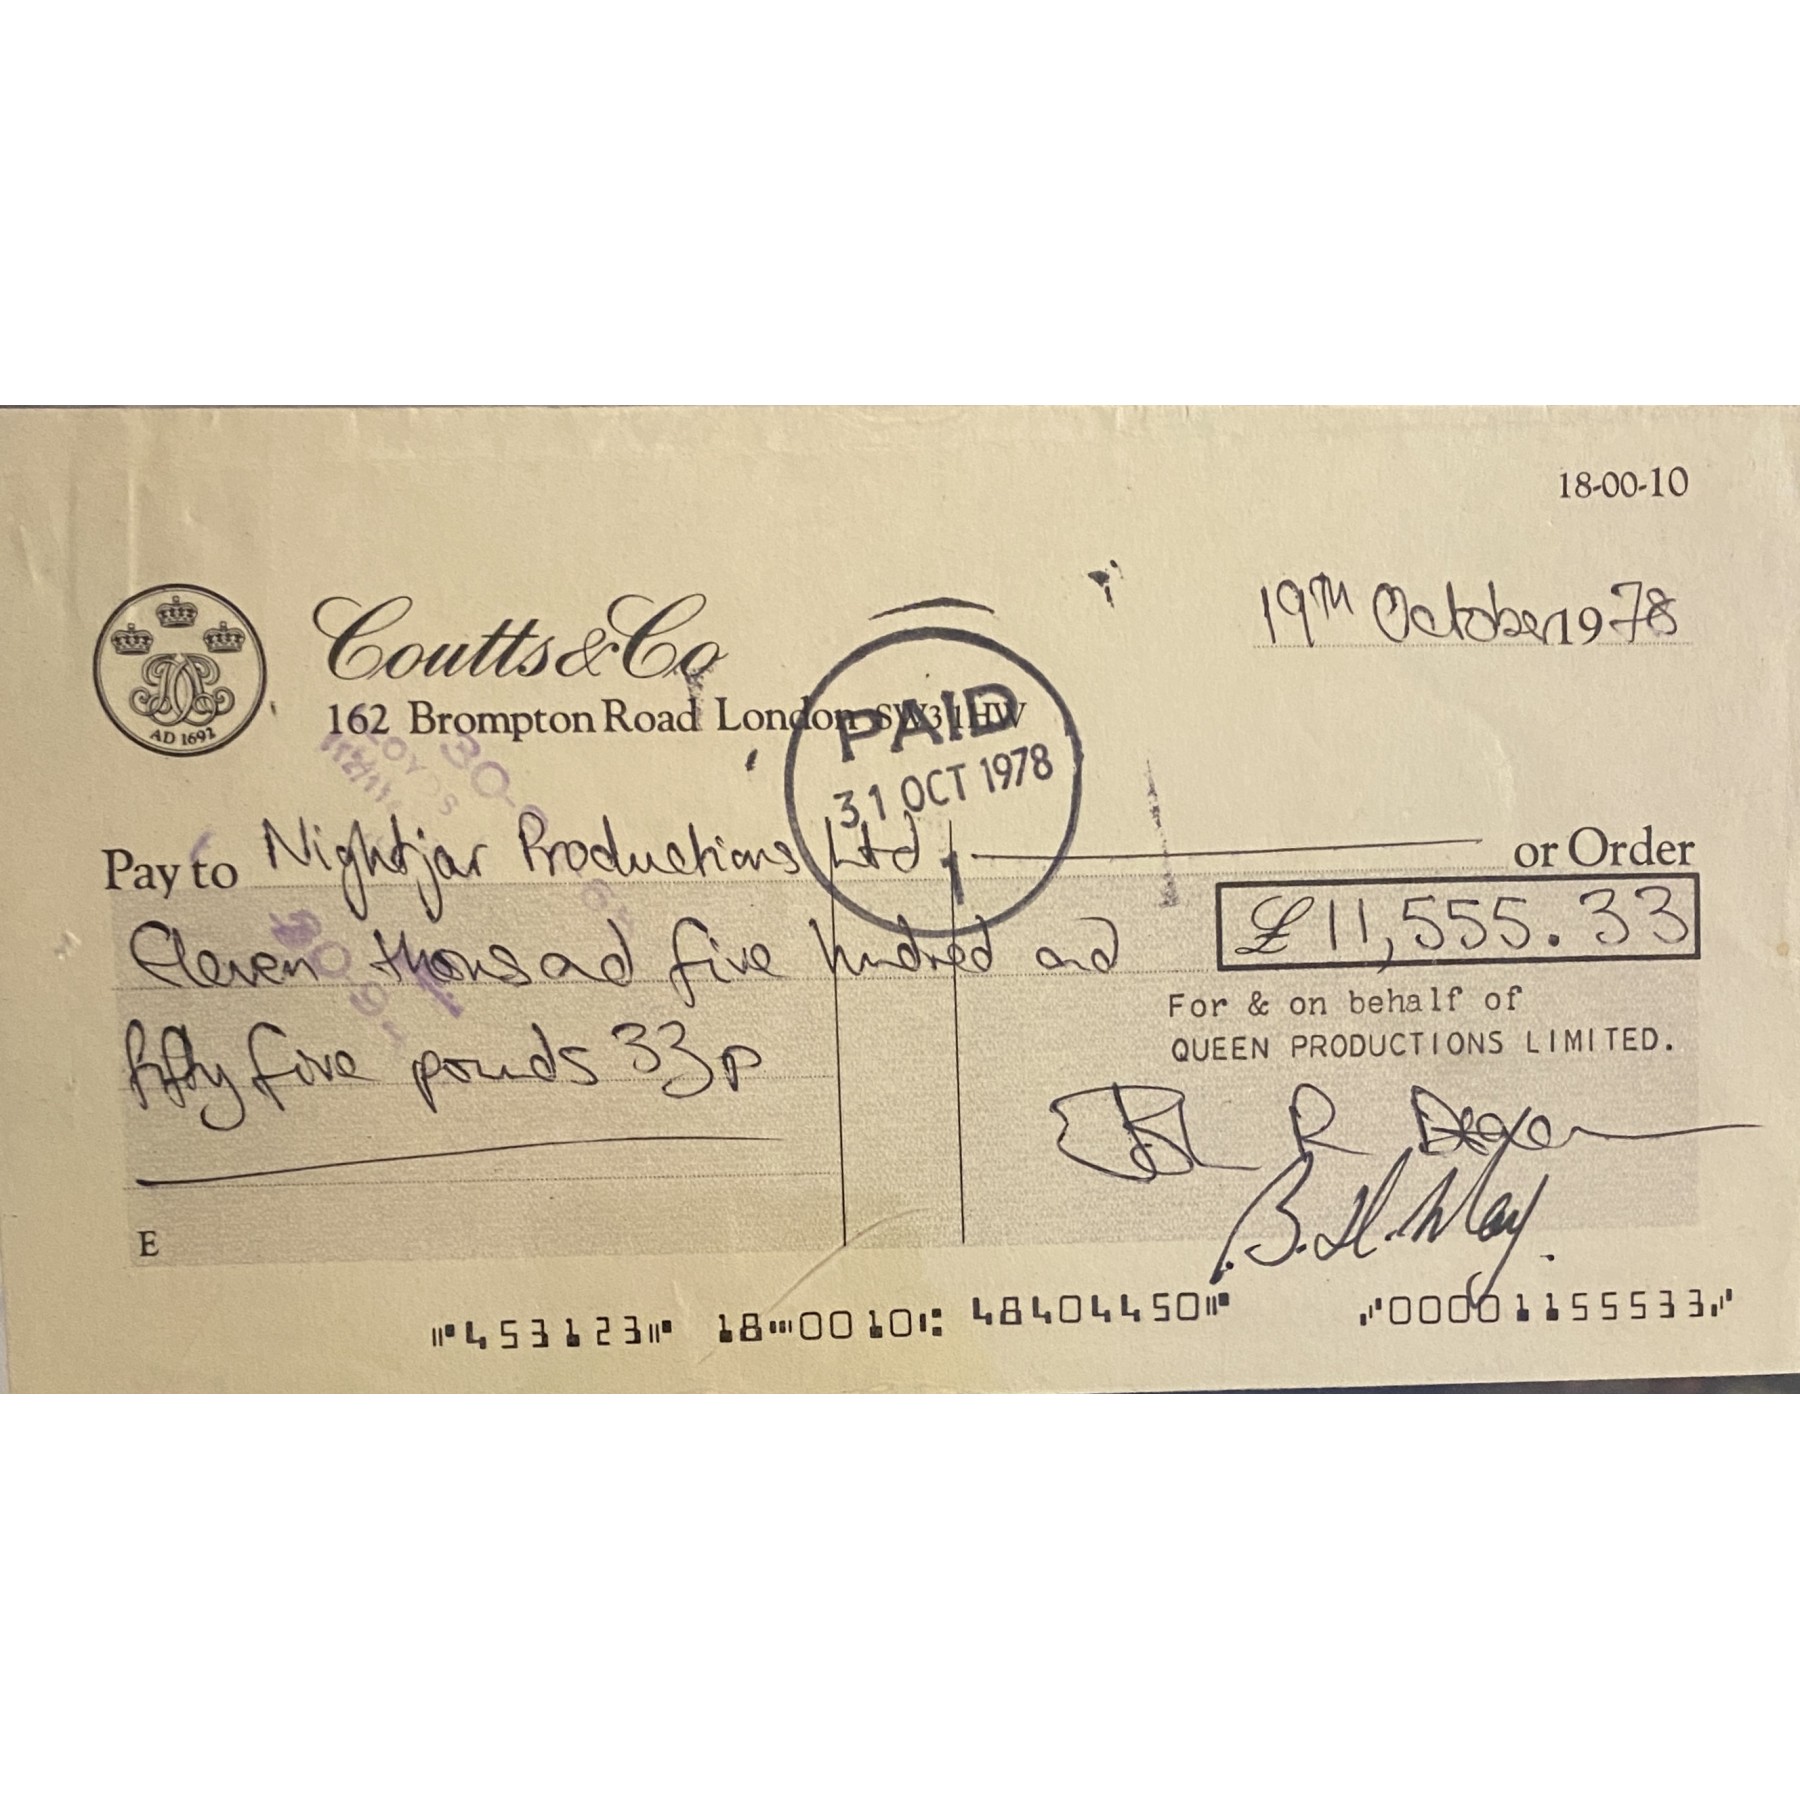 18-00-10
19TH October 1978
Coutts & Co
162 Brompton Road London SW3 1HW
AD 1692
PAID
31 OCT 1978
Pay to Nightjar Productions Ltd. or Order
Eleven thousad five hundred and
£11,555.33
fifty five pounds 33p
For & on behalf of
QUEEN PRODUCTIONS LIMITED.
J R Deacon
B. H. May.
E
453123 18 0010 48404450 00001155533